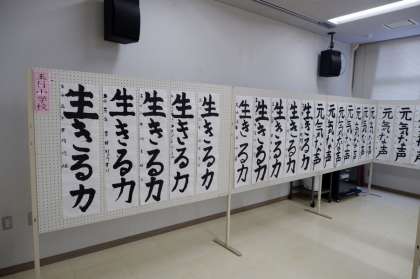 小学校
生きる力
生きる力
生きる力
生きる力
生きる力
生きる力
生きる力
生きる力
生きる力
生きる力
元気な声
元気な声
元気な声
元気な声
元気な声
元気な声
元気な声
元気な声